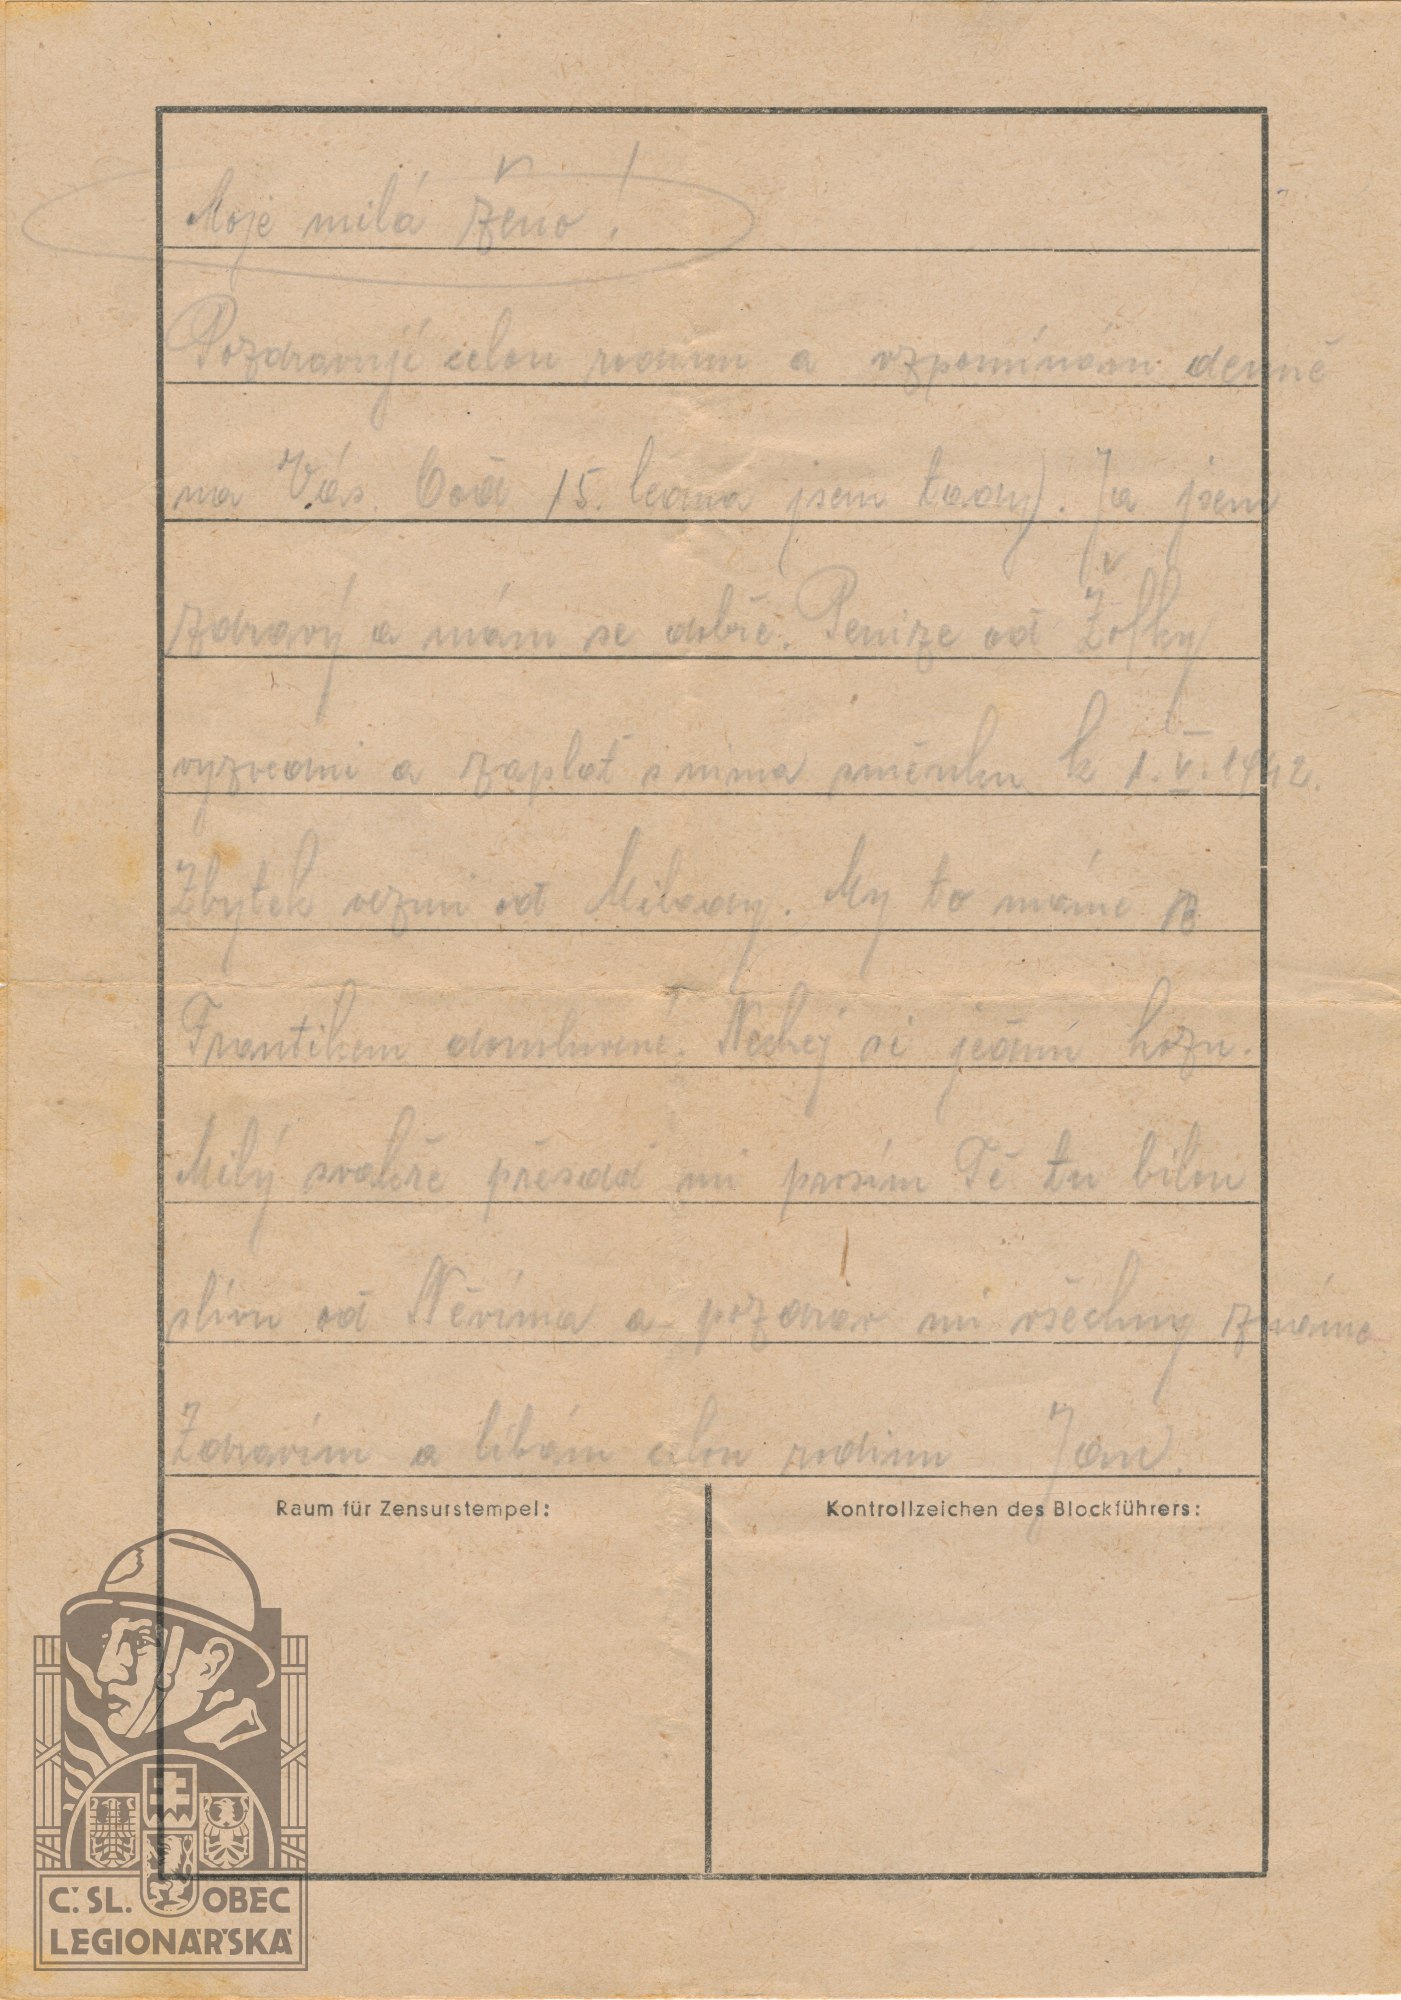 Moje milá ženo!
Pozdravuji celou rodinu a vzpomínám denně
na Vás. (od 15. ledna jsem tady). Ja jsem
zdravý a mám se dobře. Penize od Žofky
vyzvedni a zaplať s nima směnku k 1. V. 1942.
Zbytek vezmi od Milady. My to máme s
Frantikem domluvené. Nechej si jednu kozu.
Milý svakře přesaď mi prosím Tě tu bílou
slívu od Něvíma a pozdrav mi všechny známé
Zdravím a líbám celou rodinu Jan.
Raum für Zensurstempel:
Kontrollzeichen des Blockführers:
Č. SL. OBEC
LEGIONÁŘSKÁ